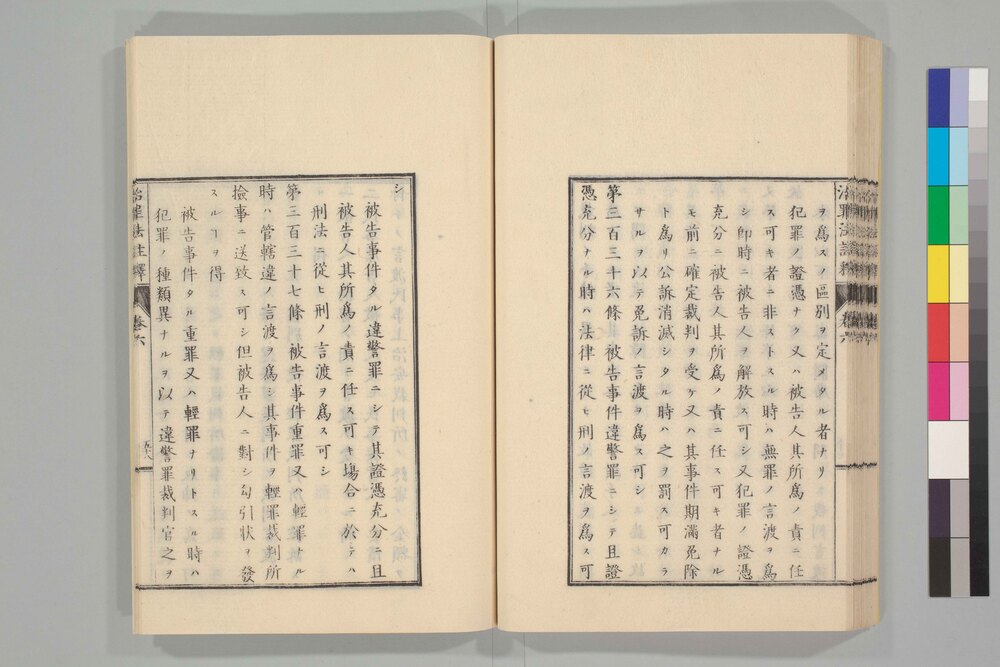 治罪法註釋 卷六
ヲ爲スノ區別ヲ定メタル者ナリ
犯罪ノ證憑ナク又ハ被告人其所爲ノ責ニ任
ス可キ者ニ非ストスル時ハ無罪ノ言渡ヲ爲
シ即時ニ被告人ヲ解放ス可シ又犯罪ノ證憑
充分ニ被告人其所爲ノ責ニ任ス可キ者ナル
モ前ニ確定裁判ヲ受ケ又ハ其事件期滿免除
ト爲リ公訴消滅シタル時ハ之ヲ罰ス可カラ
サルヲ以テ免訴ノ言渡ヲ爲ス可シ
第三百三十六條 被告事件違警罪ニシテ且證
憑充分ナル時ハ法律ニ從ヒ刑ノ言渡ヲ爲ス可
シ
被告事件タル違警罪ニシテ其證憑充分ニ且
被告人其所爲ノ責ニ任ス可キ場合ニ於テハ
刑法ニ從ヒ刑ノ言渡ヲ爲ス可シ
第三百三十七條 被告事件重罪又ハ輕罪ナル
時ハ管轄違ノ言渡ヲ爲シ其事件ヲ輕罪裁判所
撿事ニ送致ス可シ但被告人ニ對シ勾引狀ヲ發
スルヿヲ得
被告事件タル重罪又ハ輕罪ナリトスル時ハ
犯罪ノ種類異ナルヲ以テ違警罪裁判官之ヲ
治罪法註釋 卷六